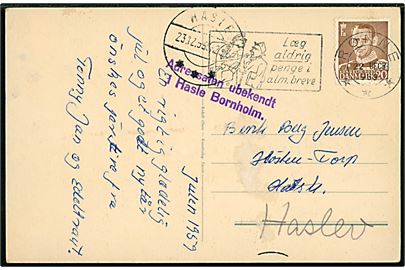 HASLE
23.12.59
Læg
aldrig
penge i
alm. breve
DANMARK 20
Adressaten ubekendt
i Hasle Bornholm.
Julen 1959
En rigtig glædelig
jul og et godt nytår
ønskes for året fra
Tonny Jan og Edeltraut.
Jensen
Torp
Haslev